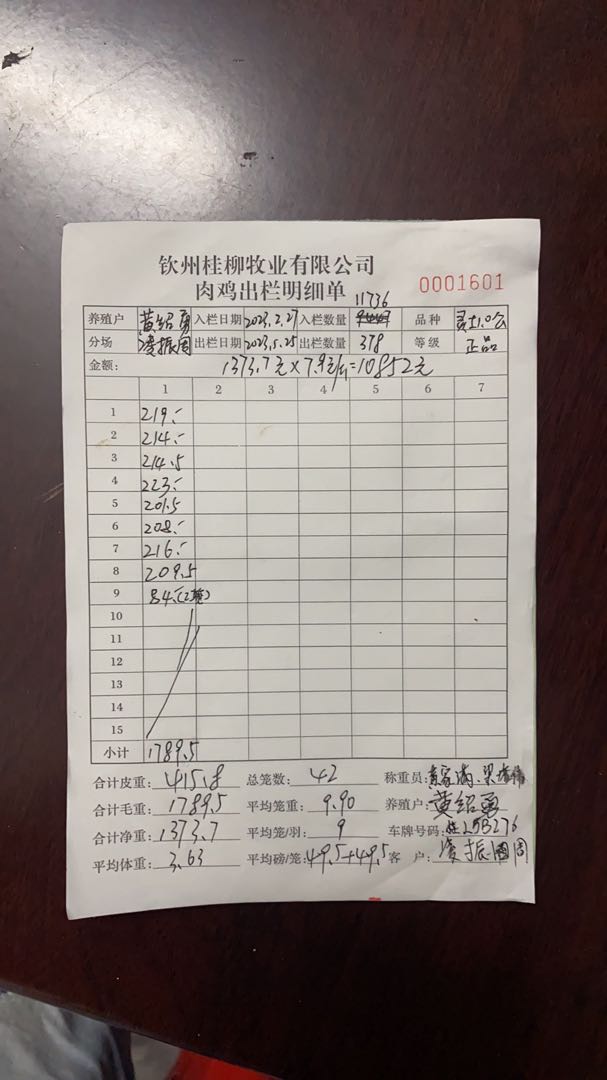 钦州桂柳牧业有限公司
肉鸡出栏明细单
0001601
11736
养殖户 黄绍勇 入栏日期 2023.2.27 入栏数量 品种
分场 凌振周 出栏日期 2023.5.25 出栏数量 378 等级 正品
金额： 1373.7元×7.9元/斤=10852元
1 2 3 4 5 6 7
1 219.-
2 214.-
3 214.5
4 223.-
5 201.5
6 208.-
7 216.-
8 209.5
9 84.-(2笼)
10
11
12
13
14
15
小计 1789.5
合计皮重: 415.8 总笼数: 42 称重员:
合计毛重: 1789.5 平均笼重: 9.90 养殖户: 黄绍勇
合计净重: 1373.7 平均笼/羽: 9 车牌号码: 25B276
平均体重: 3.63 平均磅/笼: 49.5+49.5 客 户: 凌振周